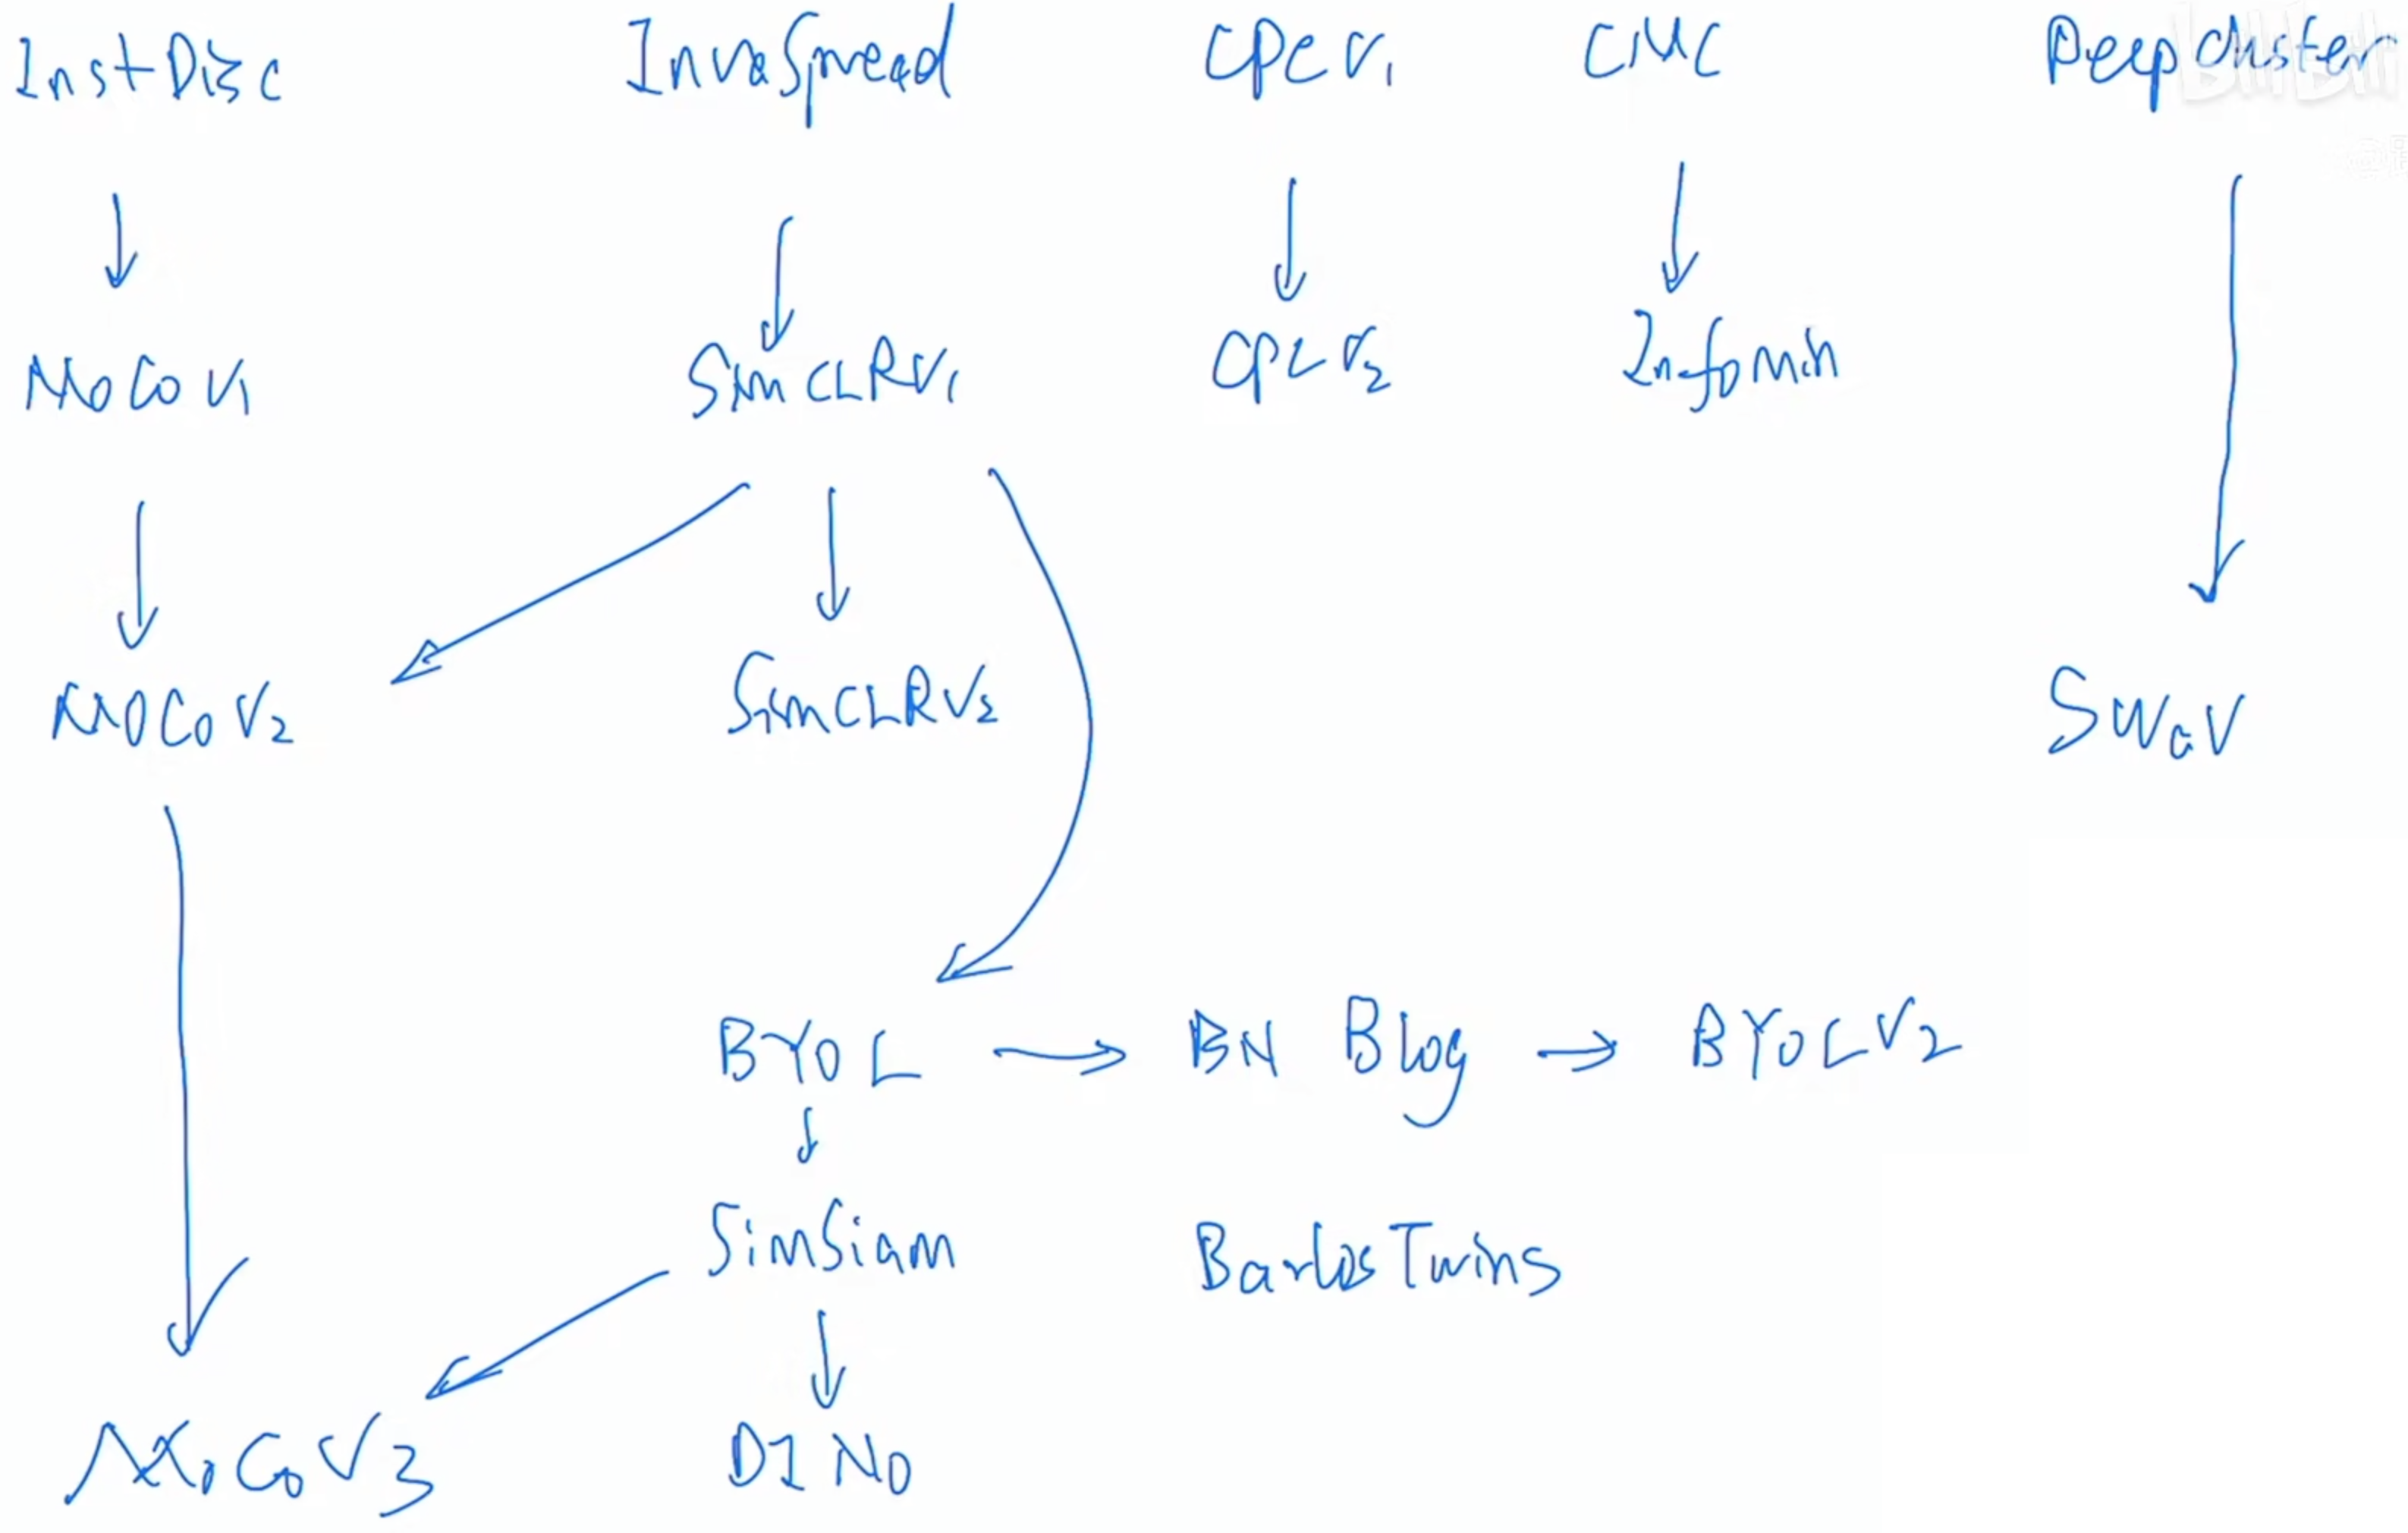 InstDisc InvaSpread CPC V1 CMC DeepCluster
MoCo V1 SimCLR V1 CPC V2 InfoMin
MoCo V2 SimCLR V2 SWaV
BYOL BN Blog BYOL V2
SimSiam Barlos Twins
MoCo V3 DINO
bilibili